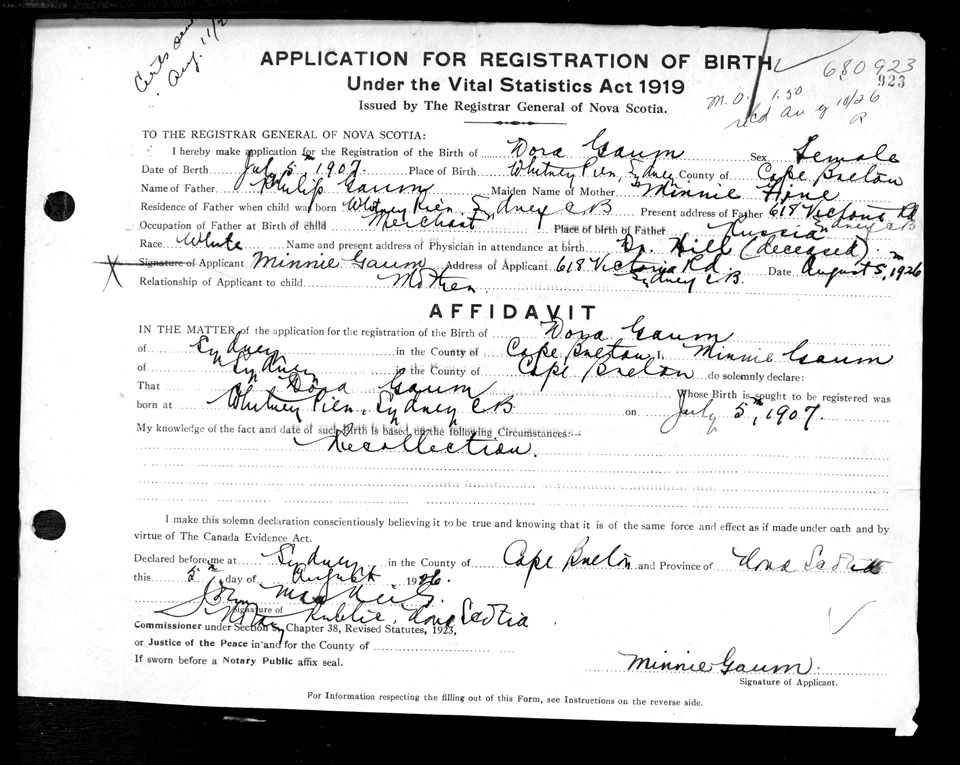 Certs sent
Aug. 11/2
APPLICATION FOR REGISTRATION OF BIRTH
Under the Vital Statistics Act 1919
Issued by The Registrar General of Nova Scotia.
680923
923
M.O. 1.50
rec'd Aug 10/26
R
TO THE REGISTRAR GENERAL OF NOVA SCOTIA:
I hereby make application for the Registration of the Birth of Dora Gaum Sex Female
Date of Berth July 5th 1907. Place of Birth Whitney Pier, Sydney County of Cape Breton
Name of Father Philip Gaum Maiden Name of Mother Minnie Fine
Residence of Father when child was born Whitney Pier, Sydney C B Present address of Father 618 Victoria Rd Sydney C B
Occupation of Father at Birth of child Merchant Place of birth of Father Russia
Race White Name and present address of Physician in attendance at birth Dr. Hill (deceased)
X Signature of Applicant Minnie Gaum Address of Applicant 618 Victoria Rd Sydney C.B. Date August 5, 1926
Relationship of Applicant to child Mother
AFFIDAVIT
IN THE MATTER of the application for the registration of the Birth of Dora Gaum
of Sydney in the County of Cape Breton I, Minnie Gaum
of Sydney in the County of Cape Breton do solemnly declare:
That Dora Gaum Whose Birth is sought to be registered was
born at Whitney Pier, Sydney C B on July 5th, 1907.
My knowledge of the fact and date of such Birth is based on the following Circumstances:-
Recollection.
I make this solemn declaration conscientiously believing it to be true and knowing that it is of the same force and effect as if made under oath and by
virtue of The Canada Evidence Act.
Declared before me at Sydney in the County of Cape Breton and Province of Nova Scotia
this 5th day of August 1926.
Signature of
Notary Public, Nova Scotia
Commissioner under Section 5, Chapter 38, Revised Statutes, 1923,
or Justice of the Peace in and for the County of
If sworn before a Notary Public affix seal.
Minnie Gaum.
Signature of Applicant.
For Information respecting the filling out of this Form, see Instructions on the reverse side.